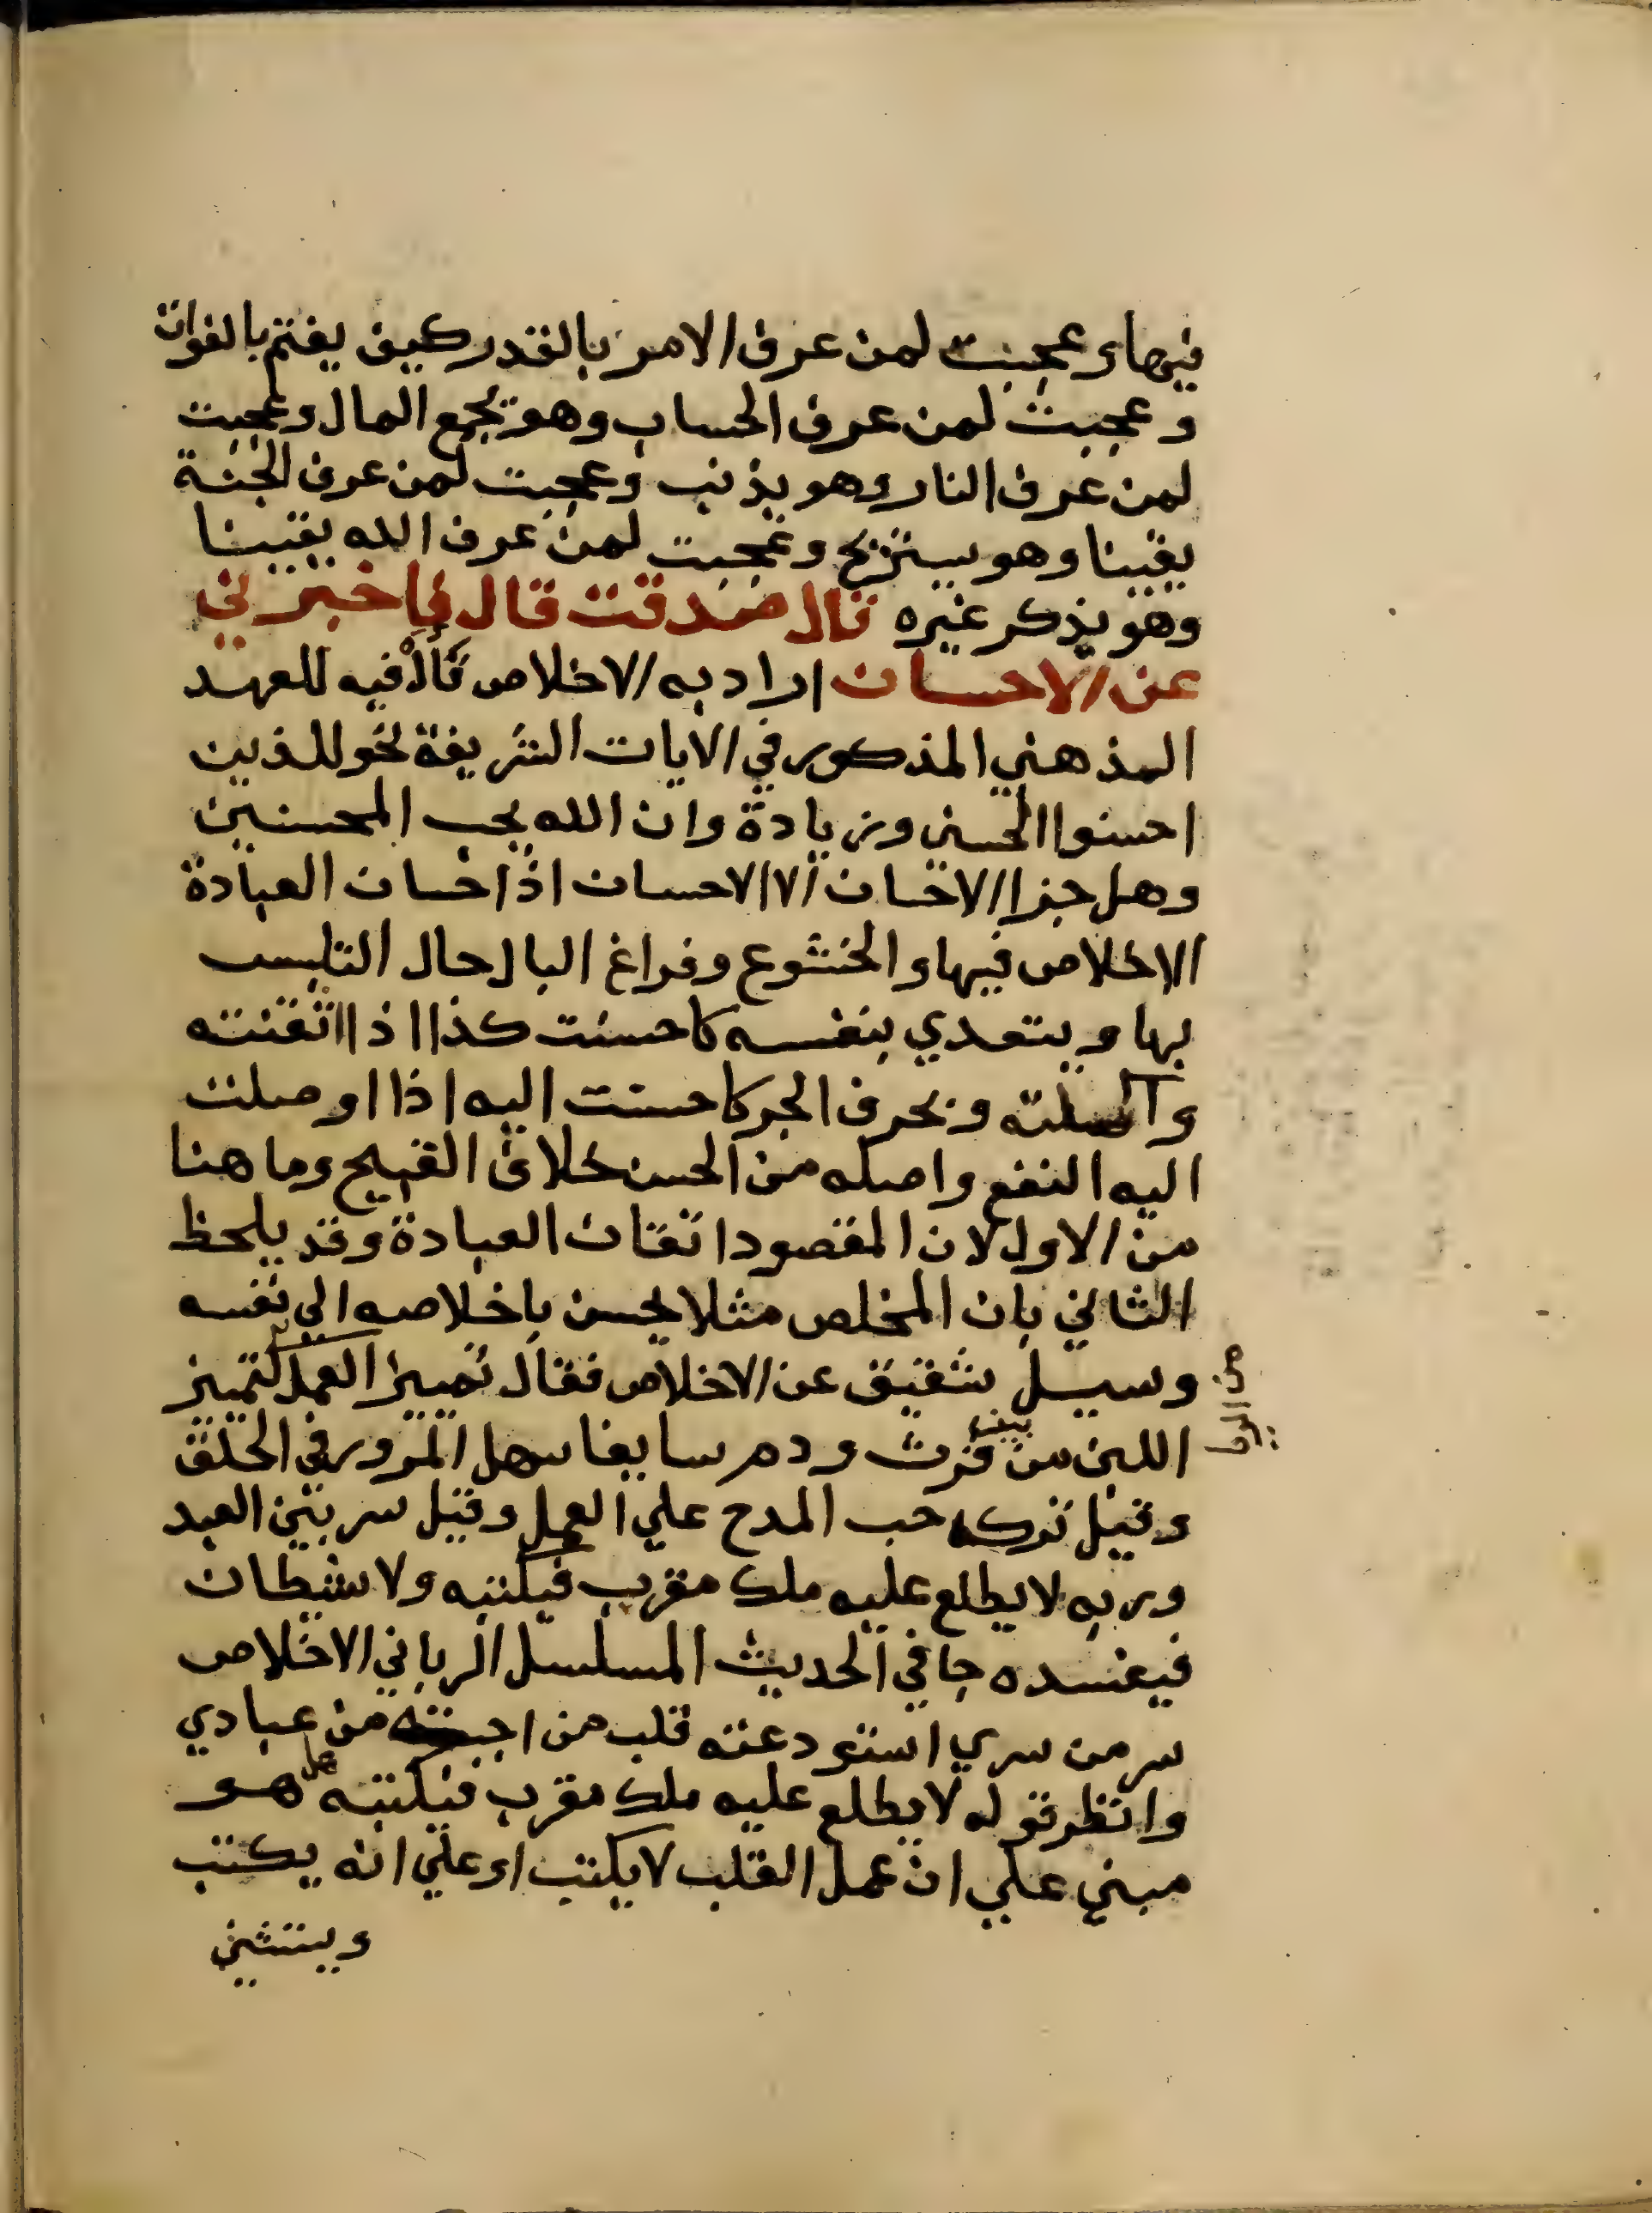 فيها وعجبت لمن عرف الامر بالقدر كيف يغتم بالفوات
وعجبت لمن عرف الحساب وهو يجمع المال وعجبت
لمن عرف النار وهو يذنب وعجبت لمن عرف الجنة
يقينا وهو يستريح وعجبت لمن عرف الله يقينا
وهو يذكر غيره قال صدقت قال فاخبرني
عن الاحسان اراد به الاخلاص فأل فيه للعهد
الذهني المذكور في الايات الشريفة نحو للذين
احسنوا الحسنى وزيادة وان الله يحب المحسنين
وهل جزا الاحسان الا الاحسان اذ احسان العبادة
الاخلاص فيها والخشوع وفراغ البال حال التلبس
بها ويتعدي بنفسه كاحسنت كذا اذا اتقنته
واكملته وبحرف الجر كاحسنت اليه اذا اوصلت
اليه النفع واصله من الحسن خلاف القبيح وما هنا
من الاول لان المقصود اتقان العبادة وقد يلحظ
الثاني بان المخلص مثلا يحسن باخلاصه الي نفسه
وسيل شقيق عن الاخلاص فقال تمييز العمل كتمييز
اللبن من بين فرث ودم سايغا سهل المرور في الحلق
وقيل تركه حب المدح علي العمل وقيل سر بين العبد
وربه لا يطلع عليه ملك مقرب فيكتبه ولا شيطان
فيفسده جا في الحديث المسلسل الرباني الاخلاص
سر من سري استودعته قلب من احببته من عبادي
وانظر قوله لا يطلع عليه ملك مقرب فيكتبه هل هو
مبني علي ان عمل القلب لا يكتب او علي انه يكتب
ويستثني